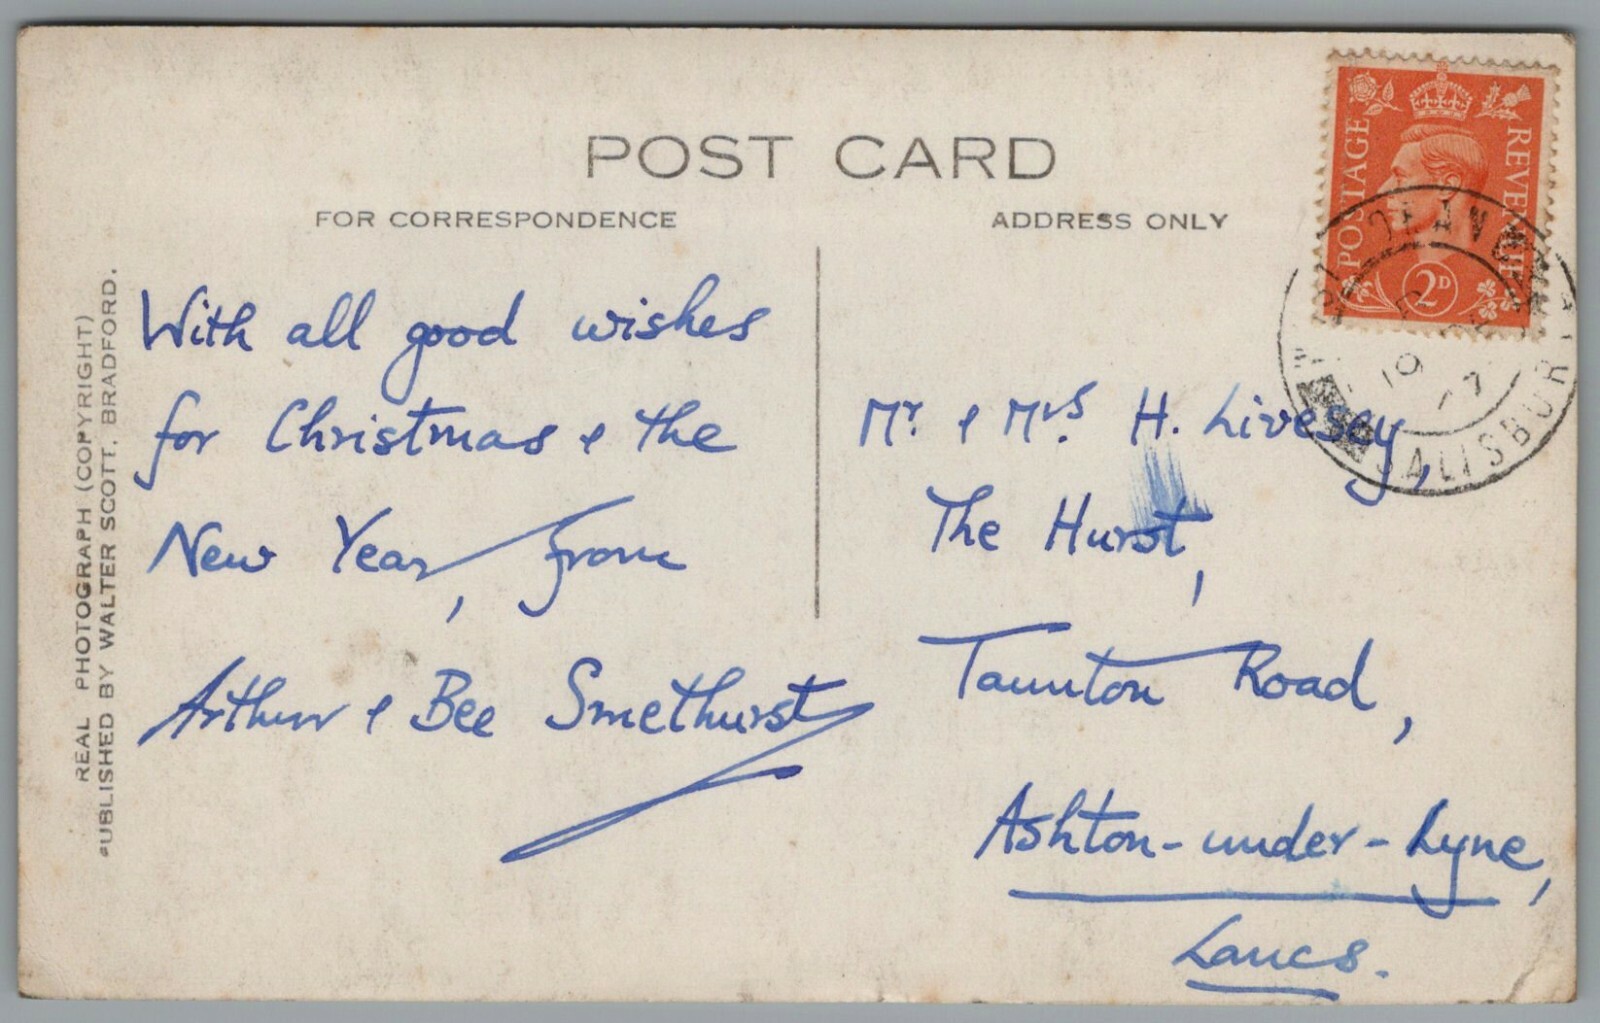 POST CARD
FOR CORRESPONDENCE
ADDRESS ONLY
POSTAGE
REVENUE
2D
SALISBURY
REAL PHOTOGRAPH (COPYRIGHT)
PUBLISHED BY WALTER SCOTT, BRADFORD.
With all good wishes
for Christmas & the
New Year, from
Arthur & Bee Smethurst
Mr. & Mrs. H. Livesey,
The Hurst,
Taunton Road,
Ashton-under-Lyne,
Lancs.